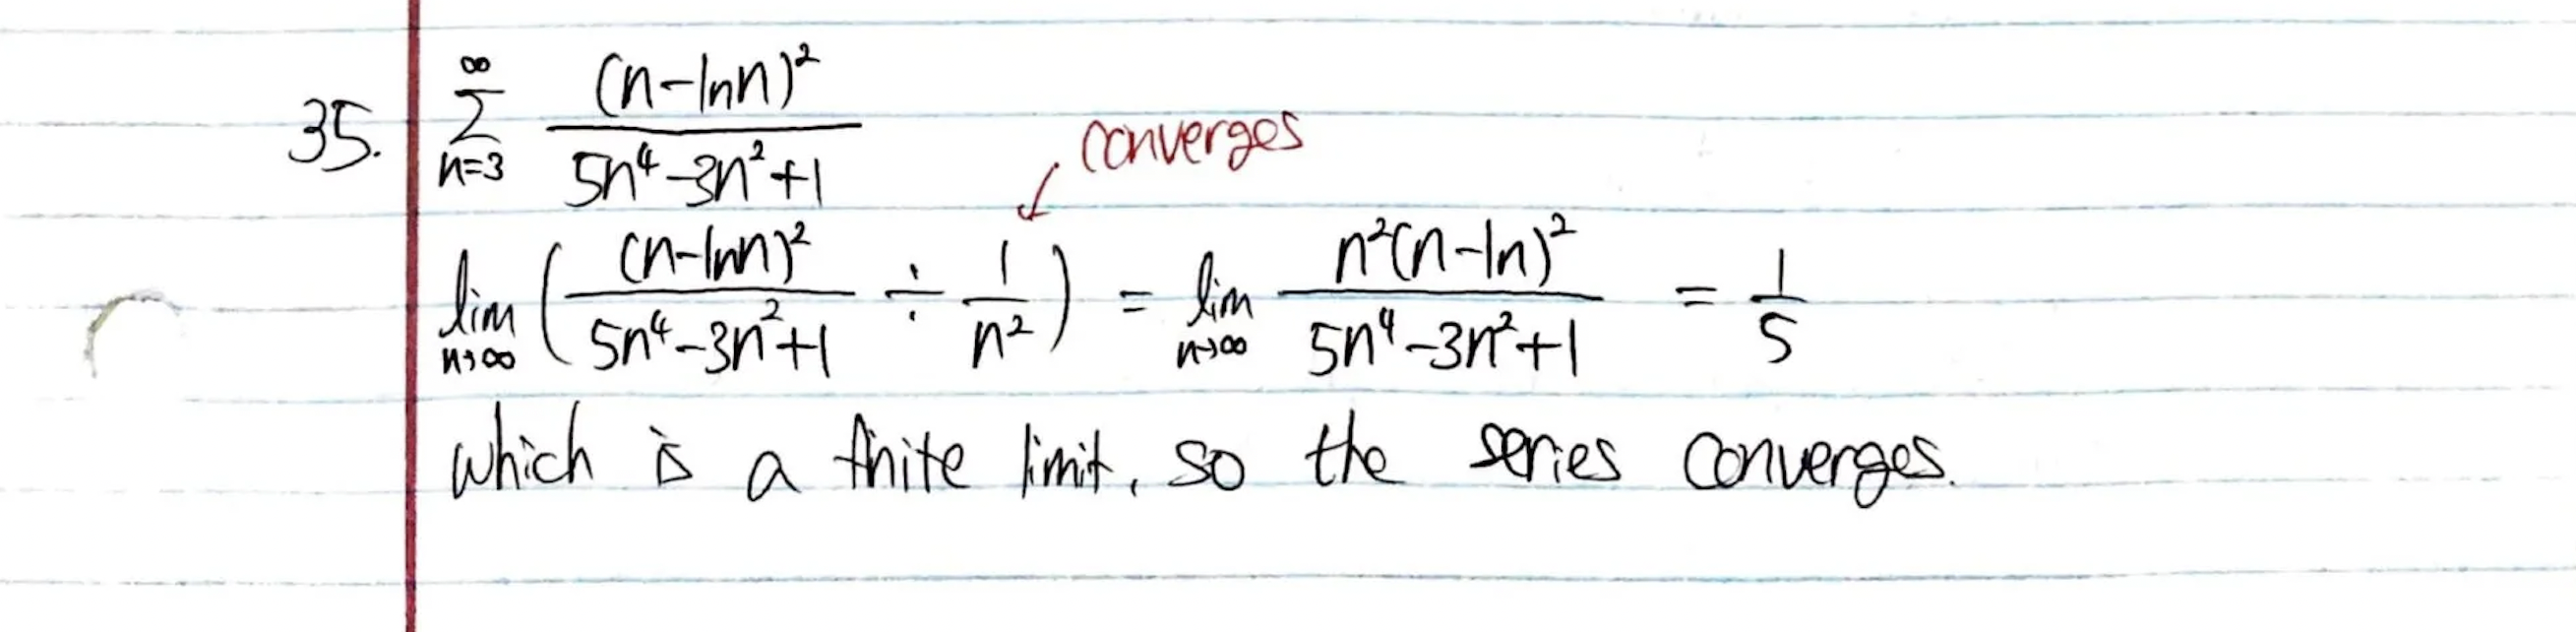 35. \sum_{n=3}^{\infty} \frac{(n-\ln n)^2}{5n^4-3n^2+1}
converges
\lim_{n\to\infty} \left( \frac{(n-\ln n)^2}{5n^4-3n^2+1} \div \frac{1}{n^2} \right) = \lim_{n\to\infty} \frac{n^2(n-\ln)^2}{5n^4-3n^2+1} = \frac{1}{5}
which is a finite limit, so the series converges.